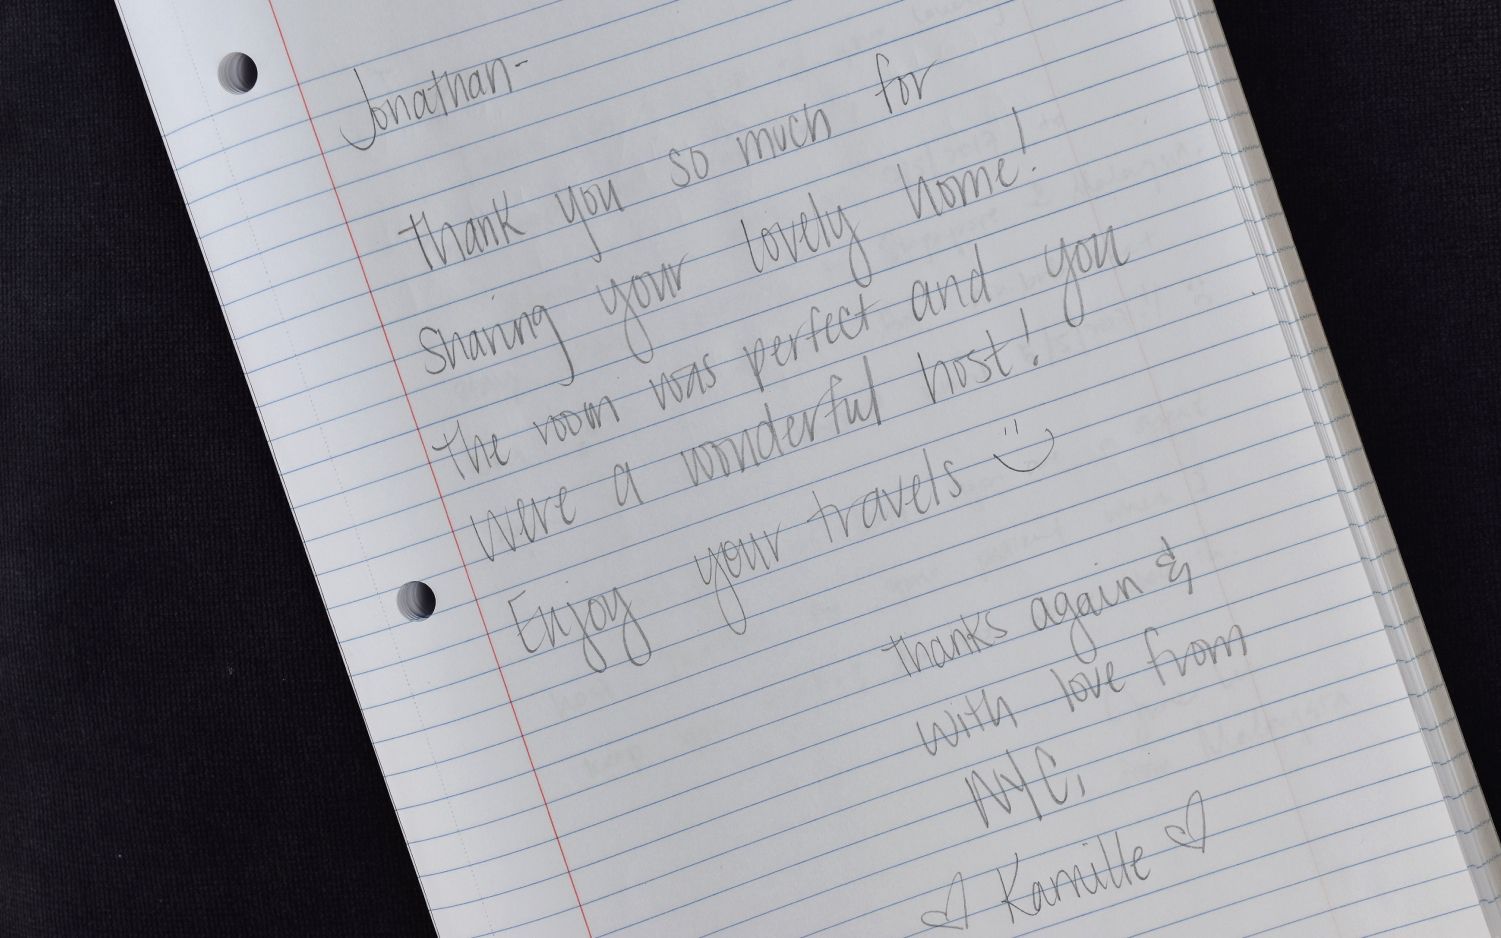 Jonathan-
thank you so much for
sharing your lovely home!
the room was perfect and you
were a wonderful host!
Enjoy your travels
thanks again &
with love from
NYC,
Kamille